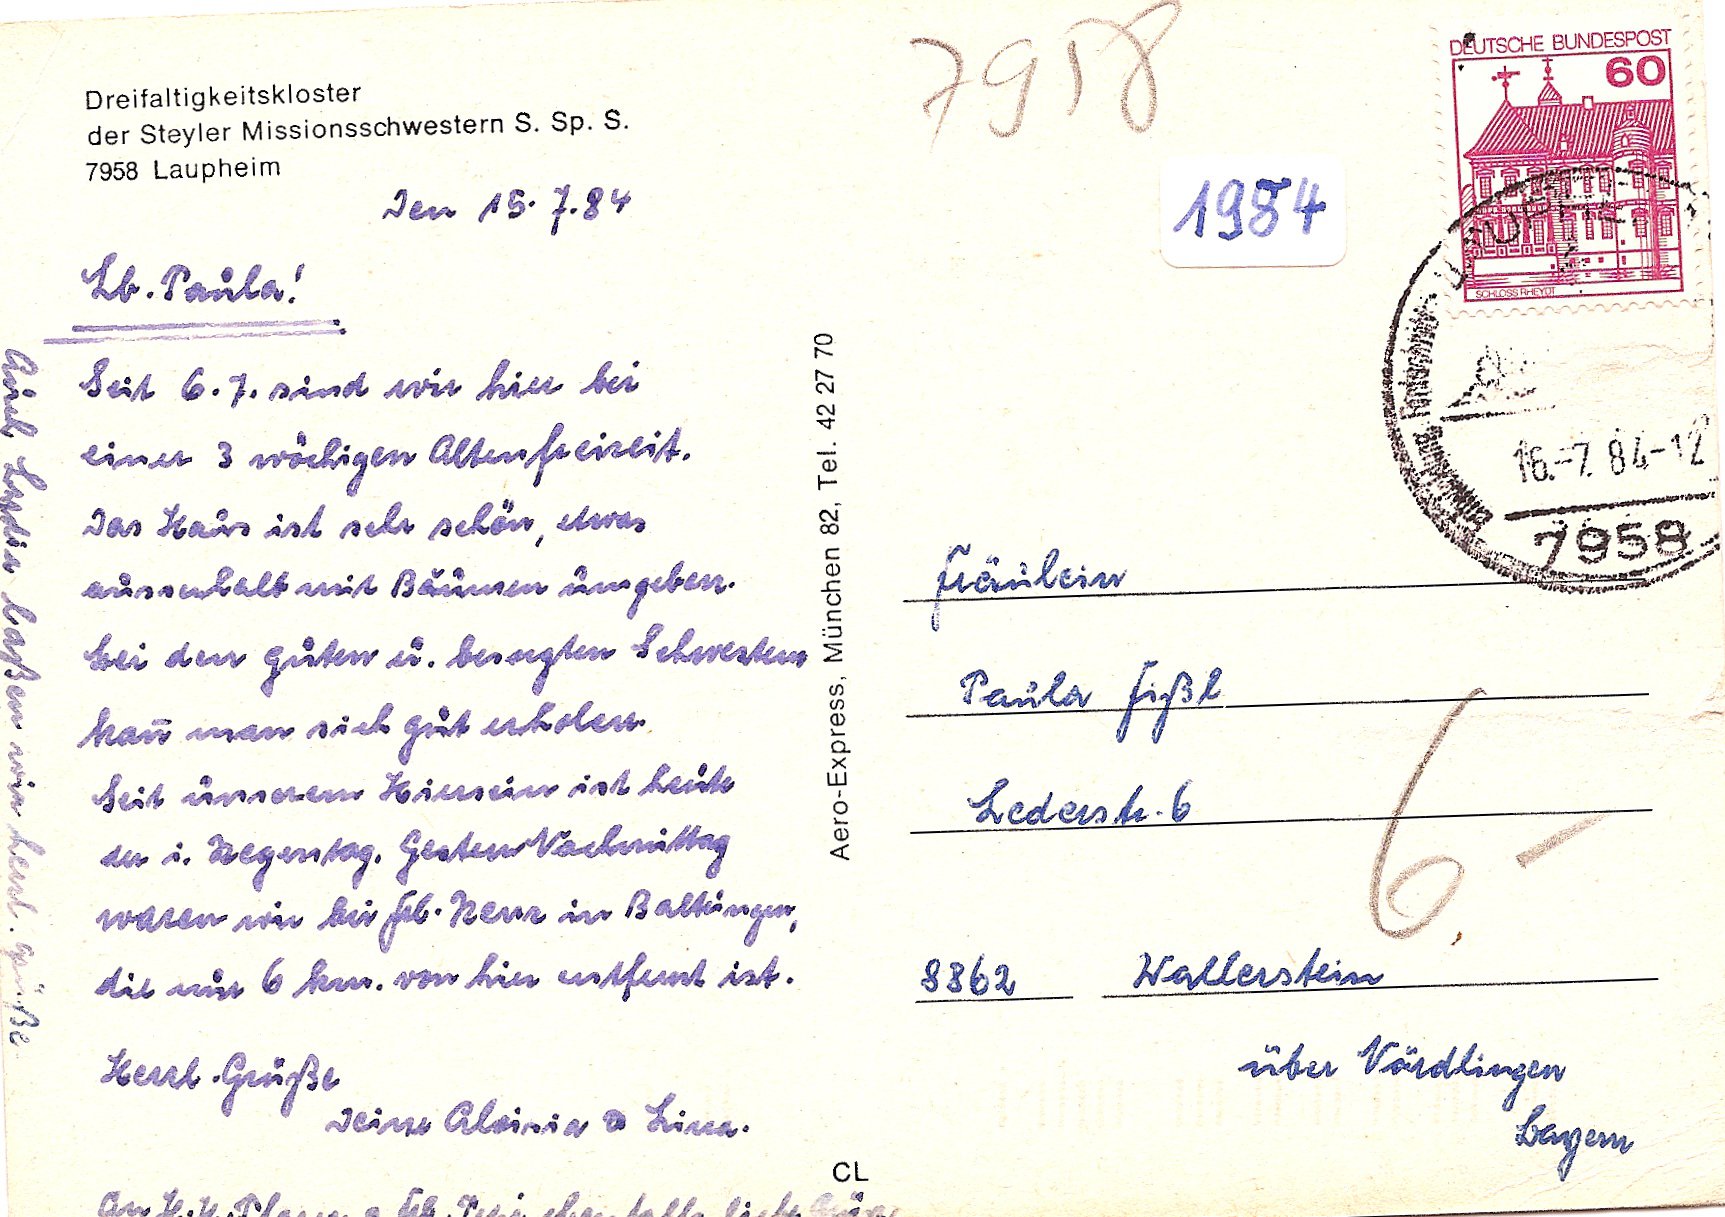 Dreifaltigkeitskloster
der Steyler Missionsschwestern S. Sp. S.
7958 Laupheim
Den 15.7.84
Lb. Paula!
Seit 6.7. sind wir hier bei
einer 3 wöchigen Altenfreizeit.
Das Haus ist sehr schön, etwas
ausserhalb mit Bäumen umgeben.
bei den guten u. besorgten Schwestern
kan̄ man sich gut erholen.
Seit unserem Hiersein ist heute
der 1. Regentag. Gestern Nachmittag
waren wir bei Frl. Nerz in Baltringen,
die nur 6 km. von hier entfernt ist.
Herzl. Grüße
Deine Aloisia Lina.
An H.H. Pfarrer ebenfalls liebe Grüße
Auch Lydia laßen wir herzl. grüßen
Aero-Express, München 82, Tel. 42 27 70
CL
7958
1984
DEUTSCHE BUNDESPOST
60
SCHLOSS RHEYDT
LAUPHEIM
16.-7.84-12
7958
Fräulein
Paula Fißl
Lederstr. 6
8862 Wallerstein
über Nördlingen
Bayern
6.-